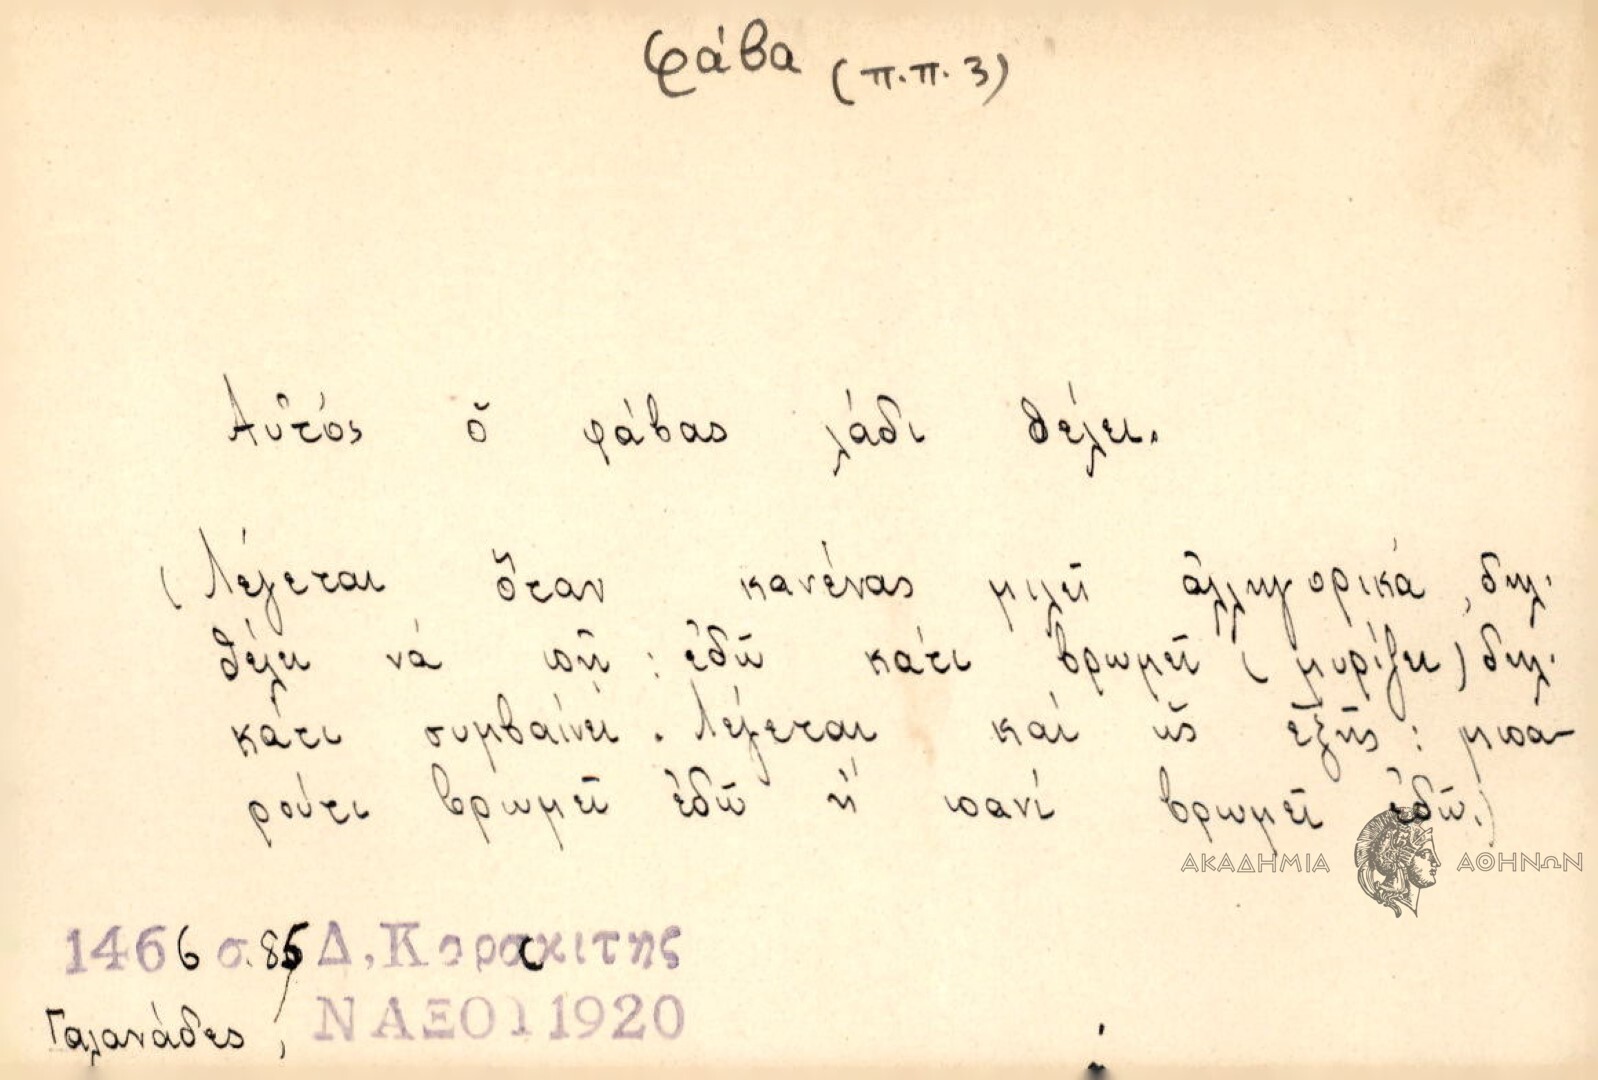 φάβα (π.π. 3)
Αὐτός ὁ φάβας λάδι θέλει.
(Λέγεται ὅταν κανένας μιλεῖ ἀλληγορικά, δηλ.
θέλει νά πῇ : ἐδῶ κάτι βρωμεῖ (μυρίζει) δηλ.
κάτι συμβαίνει. Λέγεται καί ὡς ἑξῆς : μπα-
ρούτι βρωμεῖ ἐδῶ ἤ πανί βρωμεῖ ἐδῶ.)
ΑΚΑΔΗΜΙΑ ΑΘΗΝΩΝ
1466 σ. 85 Δ. Κορακιτης
Γαλανάδες, ΝΑΞΟΥ 1920